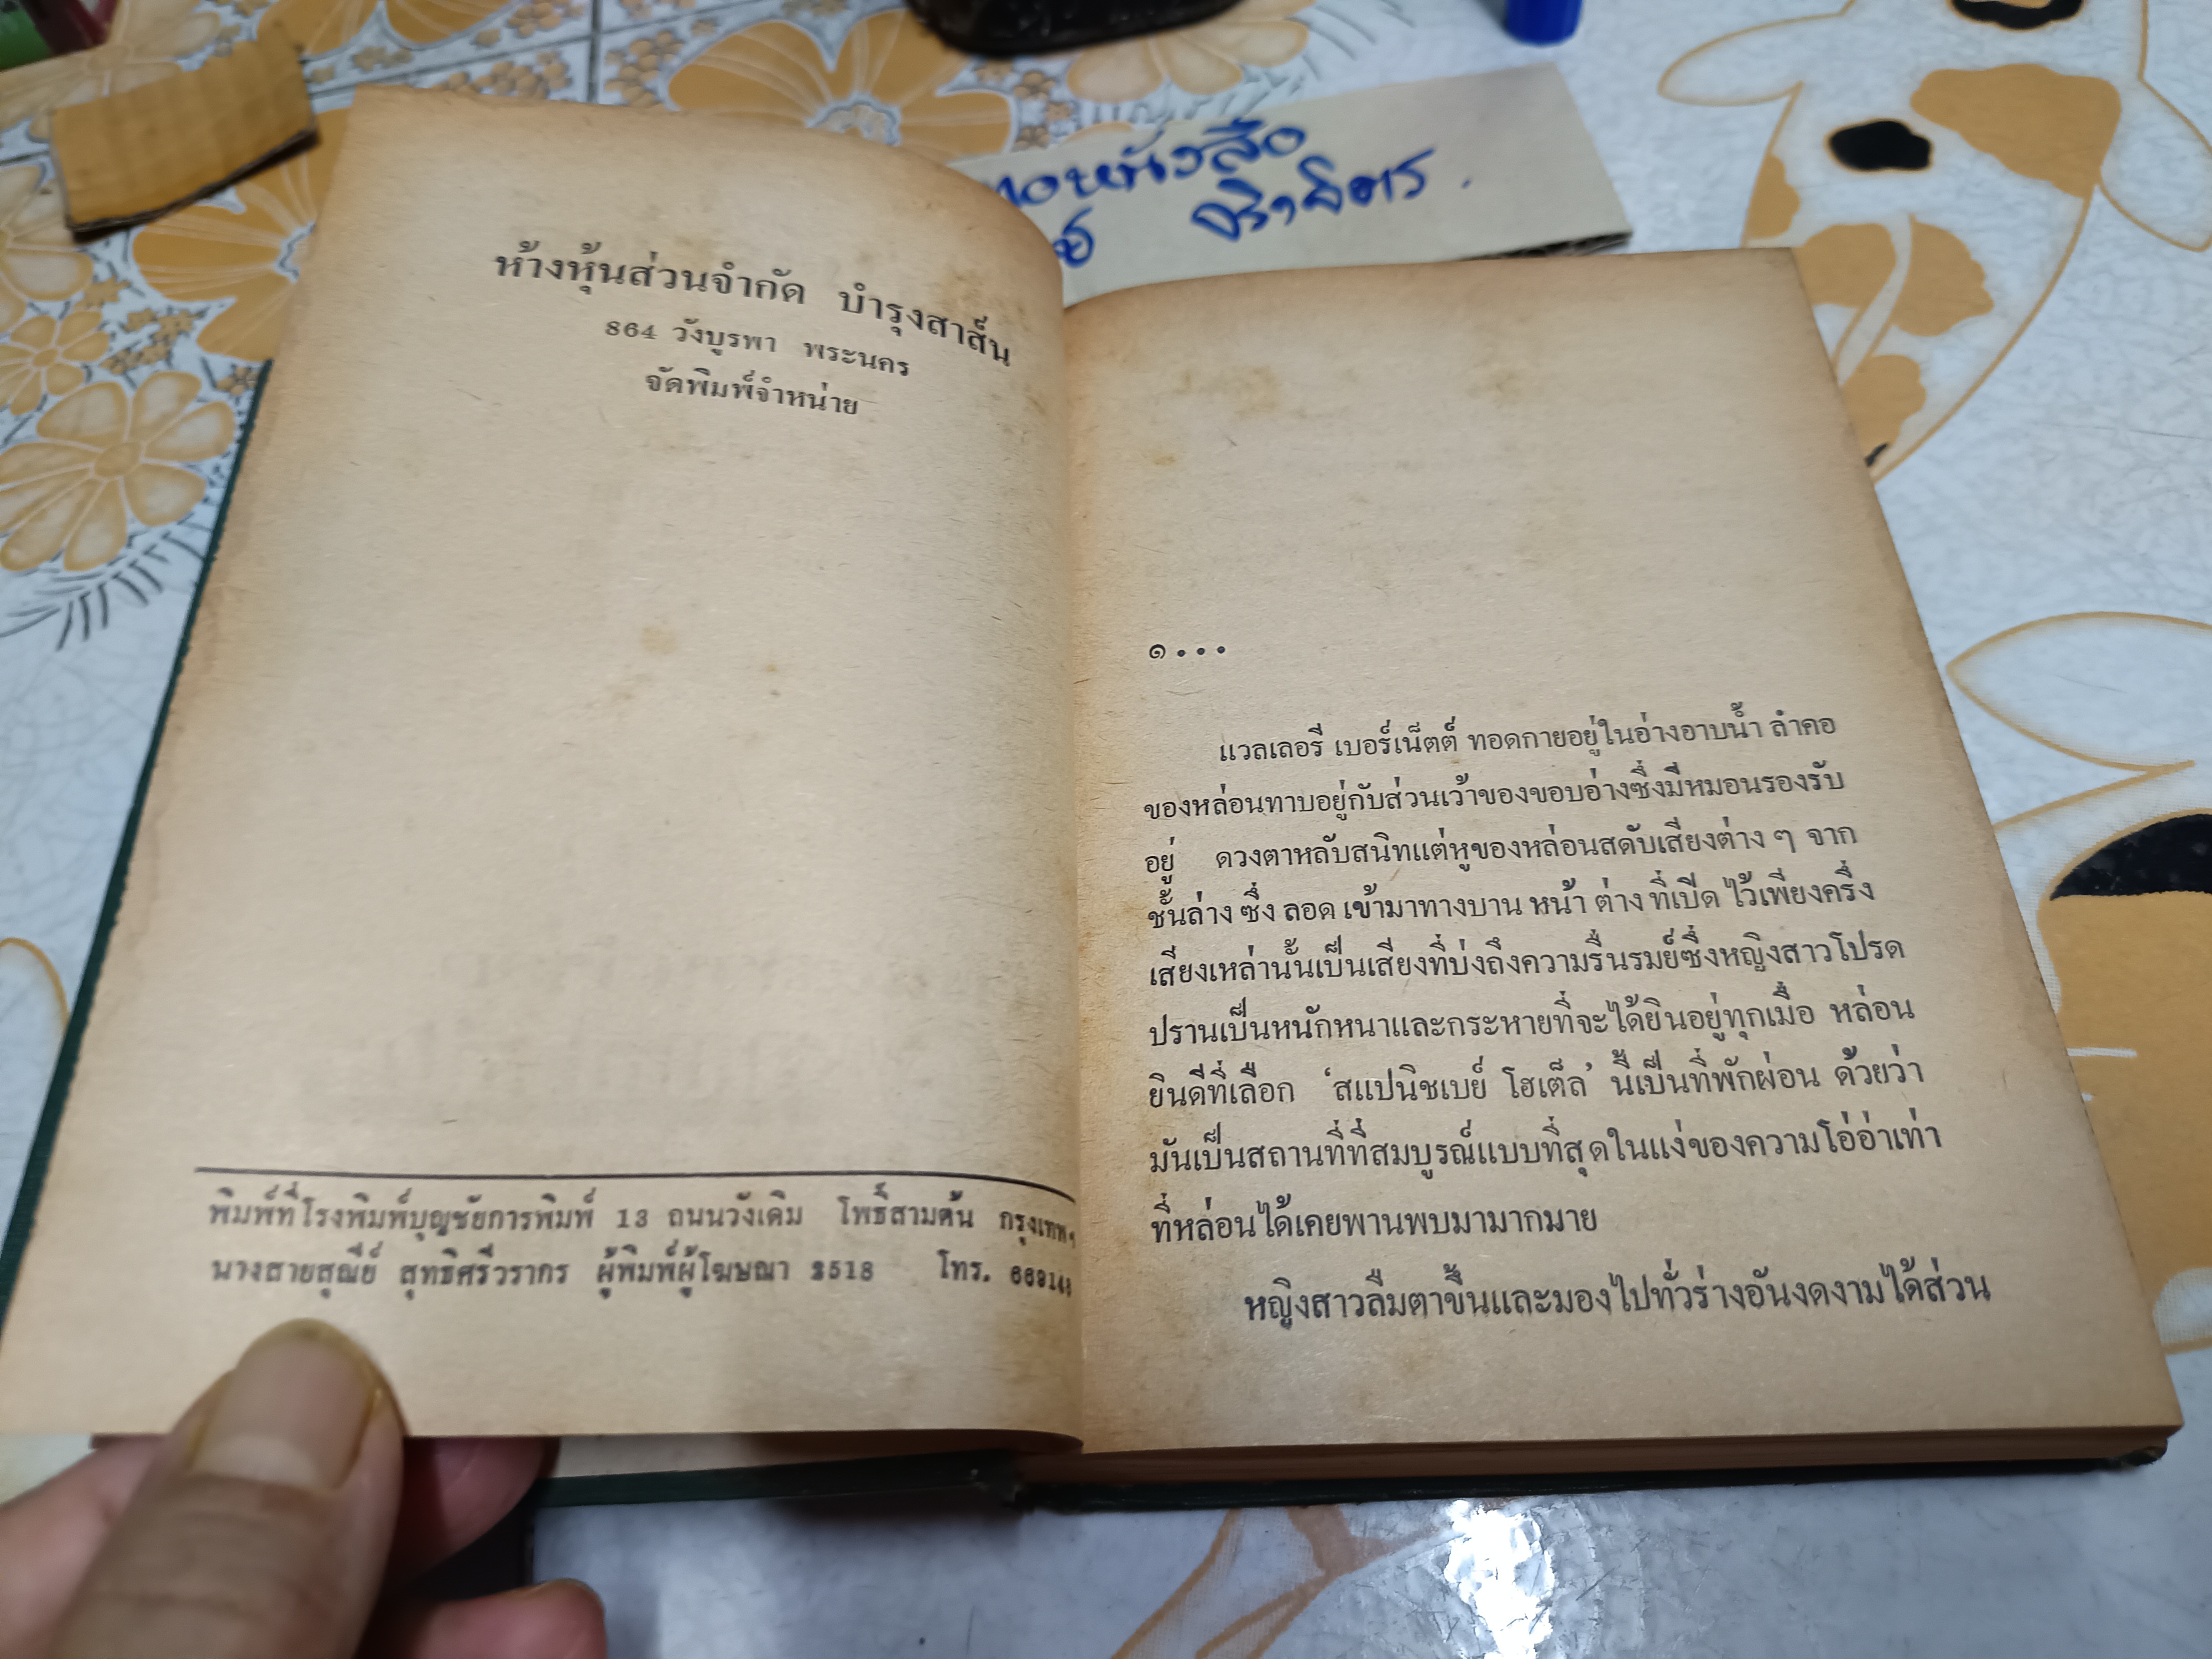 ห้างหุ้นส่วนจำกัด บำรุงสาส์น
864 วังบูรพา พระนคร
จัดพิมพ์จำหน่าย
พิมพ์ที่โรงพิมพ์บุญชัยการพิมพ์ 13 ถนนวังเดิม โพธิ์สามต้น กรุงเทพฯ
นางสายสุณีย์ สุทธิศรีวรากร ผู้พิมพ์ผู้โฆษณา 2518 โทร.
หนังสือ
๑...
แวลเลอรี เบอร์เน็ตต์ ทอดกายอยู่ในอ่างอาบน้ำ ลำคอ
ของหล่อนทาบอยู่กับส่วนเว้าของขอบอ่างซึ่งมีหมอนรองรับ
อยู่ ดวงตาหลับสนิทแต่หูของหล่อนสดับเสียงต่าง ๆ จาก
ชั้นล่าง ซึ่ง ลอด เข้ามาทางบาน หน้า ต่าง ที่เปิด ไว้เพียงครึ่ง
เสียงเหล่านั้นเป็นเสียงที่บ่งถึงความรื่นรมย์ซึ่งหญิงสาวโปรด
ปรานเป็นหนักหนาและกระหายที่จะได้ยินอยู่ทุกเมื่อ หล่อน
ยินดีที่เลือก ‘สแปนิชเบย์ โฮเต็ล’ นี้เป็นที่พักผ่อน ด้วยว่า
มันเป็นสถานที่ที่สมบูรณ์แบบที่สุดในแง่ของความโอ่อ่าเท่า
ที่หล่อนได้เคยพานพบมามากมาย
หญิงสาวลืมตาขึ้นและมองไปทั่วร่างอันงดงามได้ส่วน